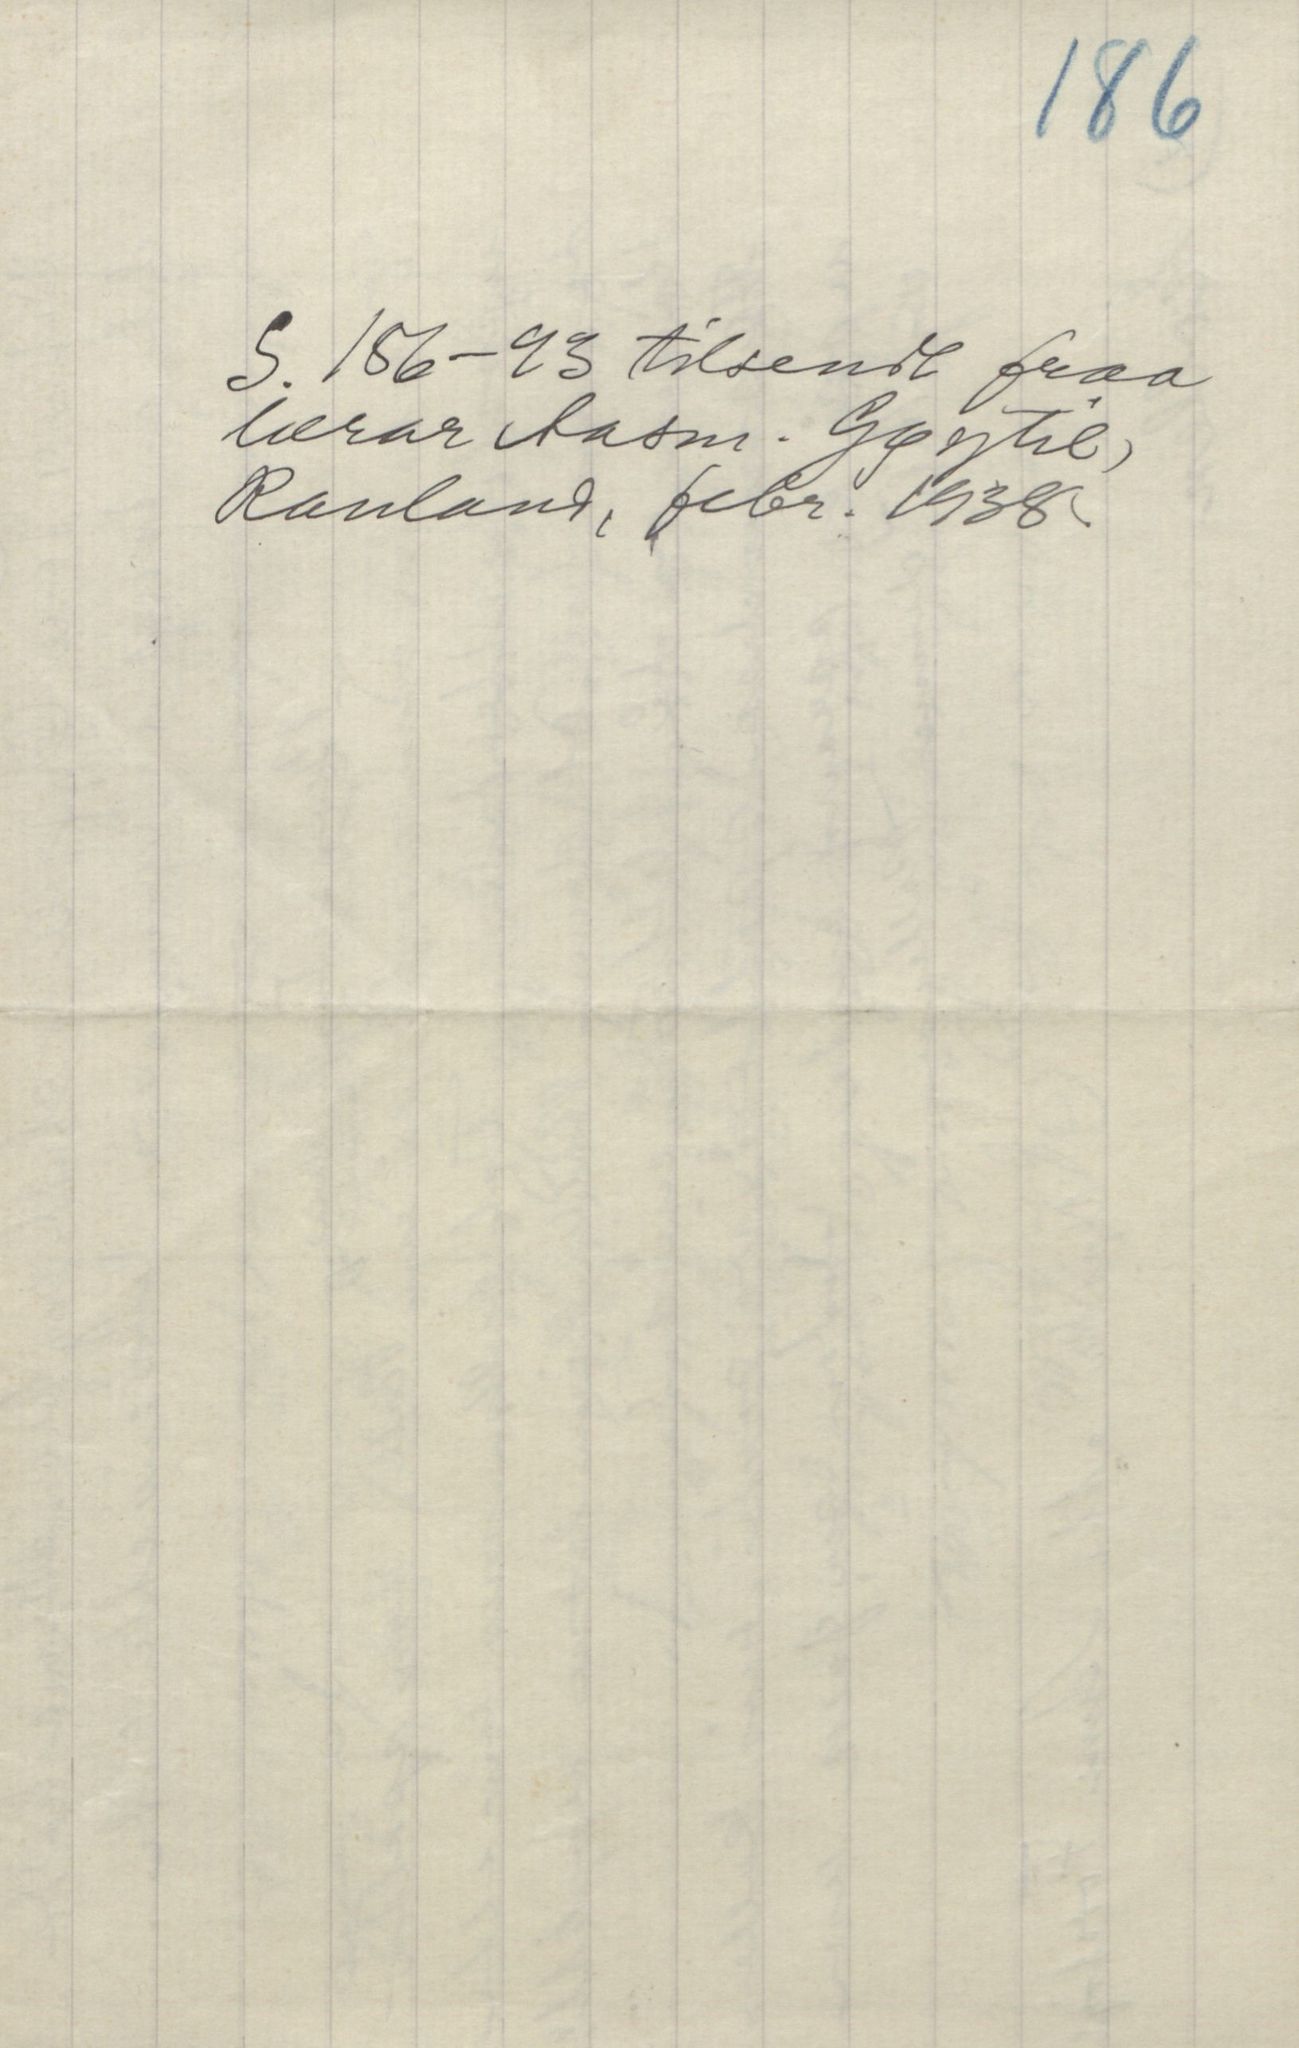 186
S. 186-93 tilsendt fraa
lærar Aasm. Gøytil,
Rauland, febr. 1938.